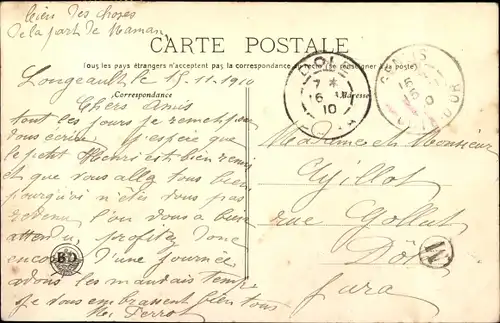 bien des choses
de la part de Maman
CARTE POSTALE
Tous les pays étrangers n'acceptent pas la correspondance au recto (se renseigner à la poste)
Longeault le 15-11-1910
Correspondance
Adresse
Chers Amis
tout les jours je remet pour
vous écrire j'espère que
le petit Henri est bien remis
et que vous alle tous bien
pourquoi n'êtes vous pas
revenu l'on vous a bien
attendu profitez donc
encore d'une journée
avons les mauvais temps
je vous embrassent bien tous
Perrot
Madame et Monsieur
Gyillot
rue Gollut
Dôle
Jura
DOLE
7 *
16
10
JURA
GENLIS
16
10
COTE D'OR
BD
M